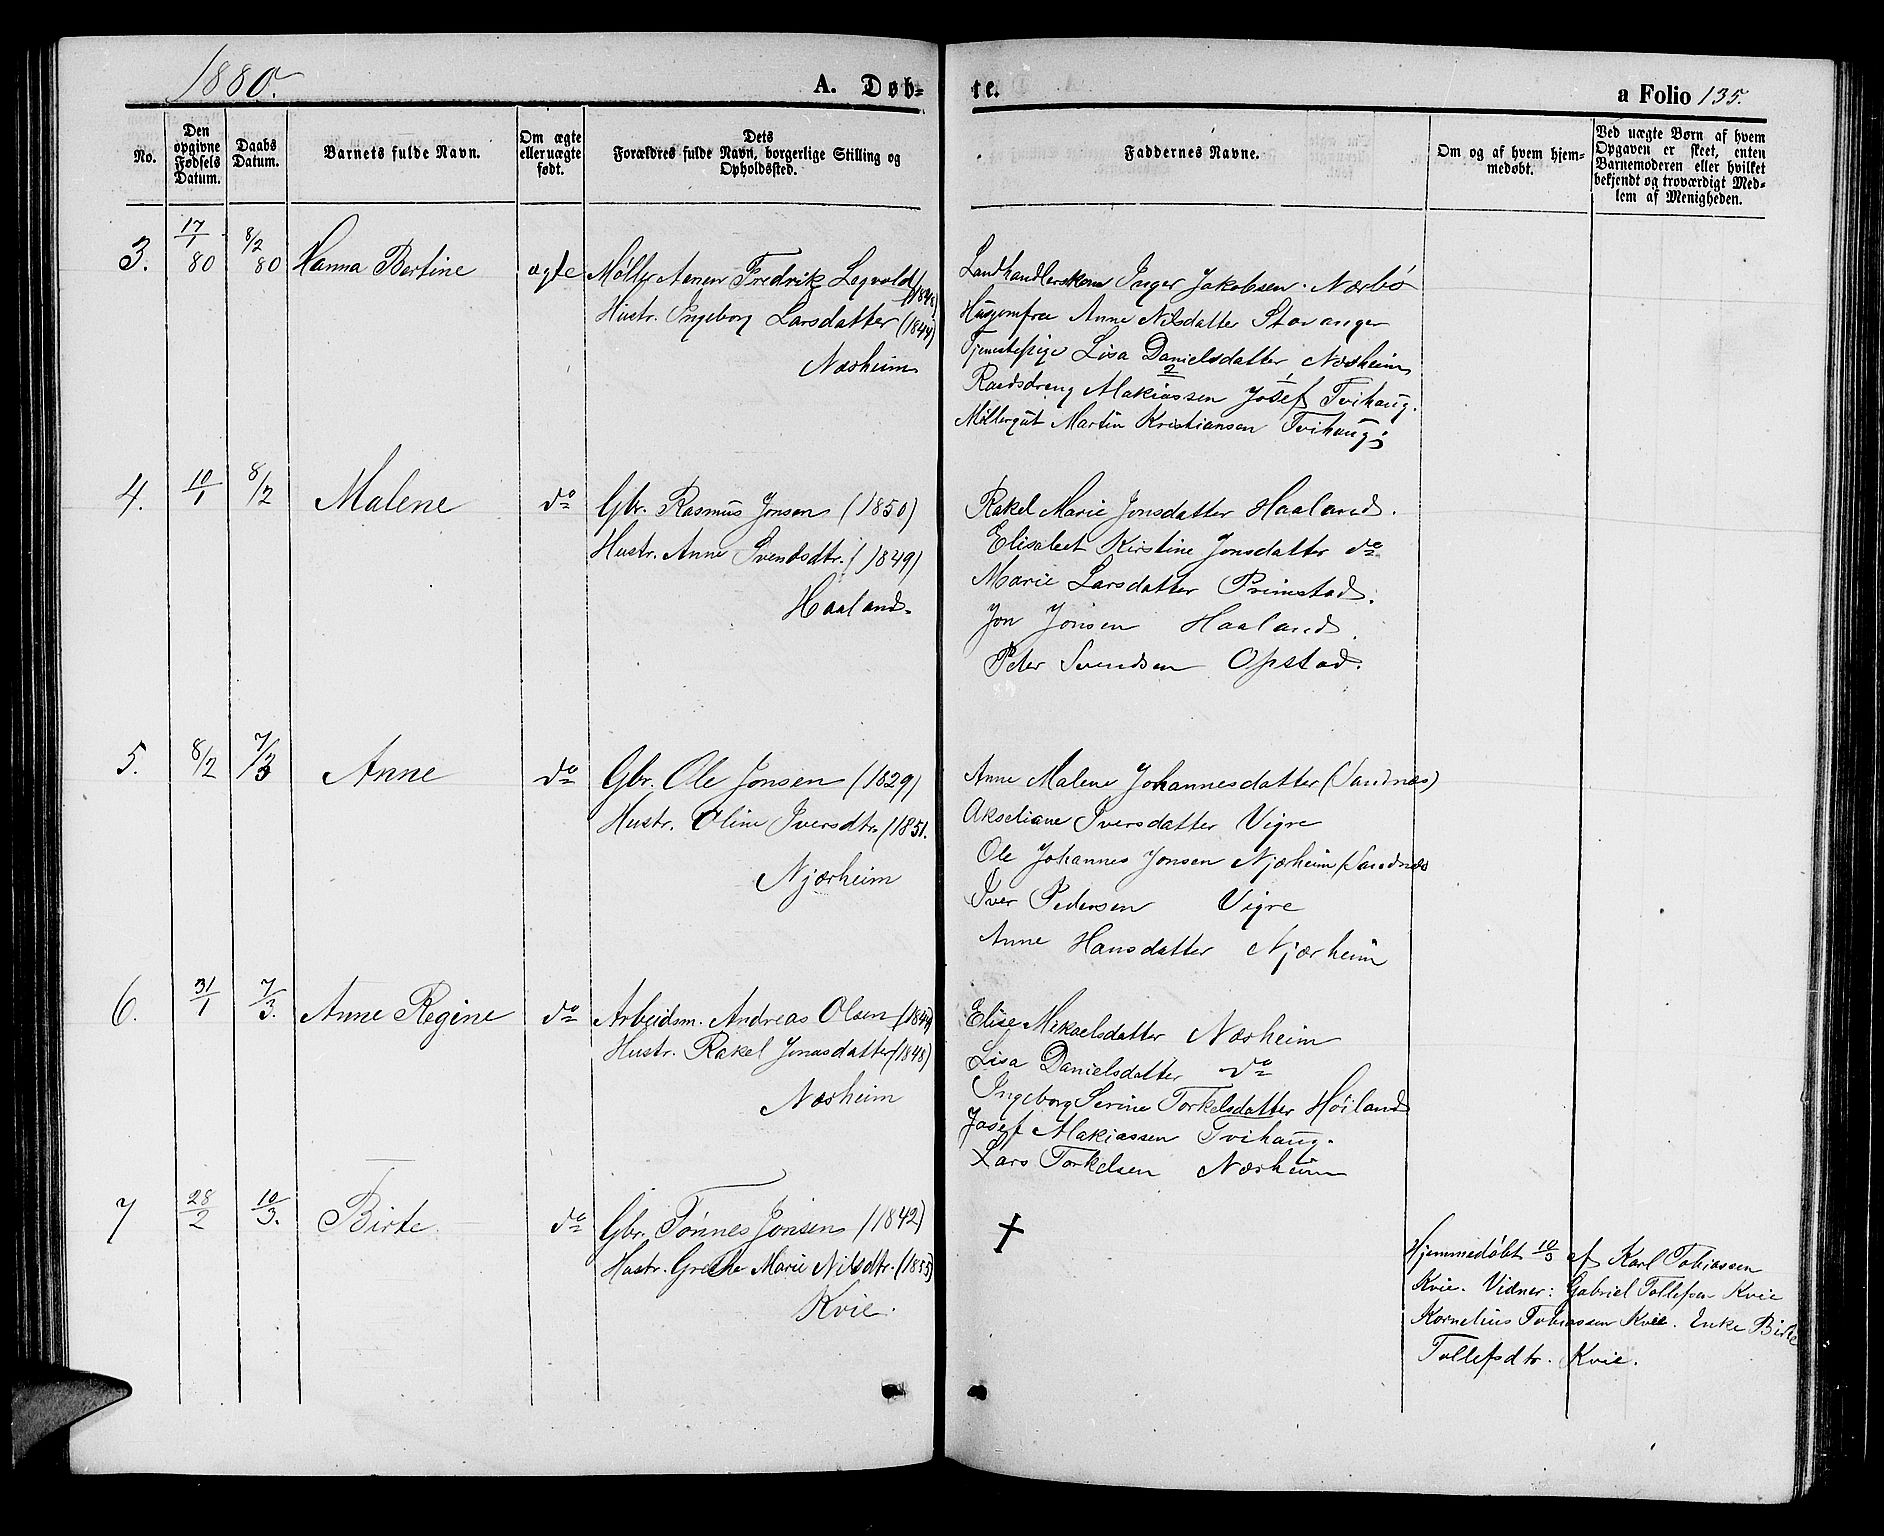 1880.
A. Døb-
te.
a Folio 135.
No.
Den opgivne Fødsels Datum.
Daabs Datum.
Barnets fulde Navn.
Om ægte eller uægte født.
Dets Forældres fulde Navn, borgerlige Stilling og Opholdssted.
Faddernes Navne.
Om og af hvem hjemmedøbt.
Ved uægte Børn af hvem Opgaven er skeet, enten Barnemoderen eller hvilket bekjendt og troværdigt Medlem af Menigheden.
3. 17/1 80 8/2 80 Hanna Bertine ægte Møller Fredrik (1848)
Hustr. Ingeborg Larsdatter (1844)
Næsheim
Landhandlerskone Inger Jakobsen. Nærbø
Husjomfru Anne Nilsdatter Stavanger
Tjenestepige Lisa Danielsdatter, Næsheim
2 1
Makiassen Josef Tvihaug.
Møllergut Martin Kristiansen Tvihaug.
4. 10/1 8/2 Malene do Gbr. Rasmus Jonsen (1850)
Hustr. Anne Svendsdtr. (1849)
Haaland.
Rakel Marie Jonsdatter Haaland.
Elisabet Kirstine Jonsdatter do
Marie Larsdatter Primstad.
Jon Jonsen Haaland.
Peter Svendsen Opstad.
5. 8/2 7/3 Anne do Gbr. Ole Jonsen (1829)
Hustr. Oline Iversdtr. (1851.
Njærheim
Anne Malene Johannesdatter (Sandnæs)
Akseliane Iversdatter Vigre
Ole Johannes Jonsen Njærheim (Sandnæs
Iver Pedersen Vigre
Anne Hansdatter Njærheim
6. 31/1 7/3. Anne Regine do Arbeidsm. Andreas Olsen (1844)
Hustr. Rakel Jonasdatter (1848)
Næsheim
Elise Mikaelsdatter Næsheim
Lisa Danielsdatter do
Ingeborg Serine Torkelsdatter Høiland
Josef Makiassen Tvihaug.
Lars Torkelsen Næsheim
7 28/2 10/3. Birte do Gbr. Tønnes Jonsen (1842)
Hustr. Grethe Marie Nilsdtr. (1855)
Kvie.
†
Hjemmedøbt 10/3 af Karl Tobiassen
Kvie. Vidner: Gabriel Tollefsen Kvie
Kornelius Tobiassen Kvie. Enke Birte
Tollefsdtr. Kvie.